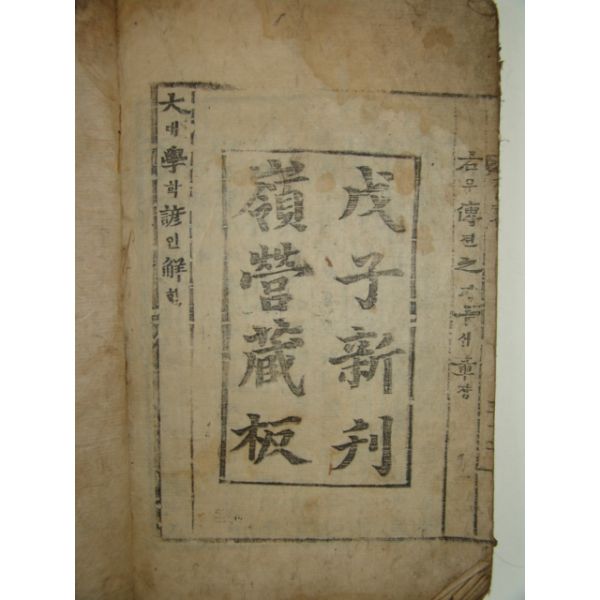 右우傳뎐之지十십章쟝
戊子新刊
嶺營藏板
大대學학諺언解ᄒᆡ